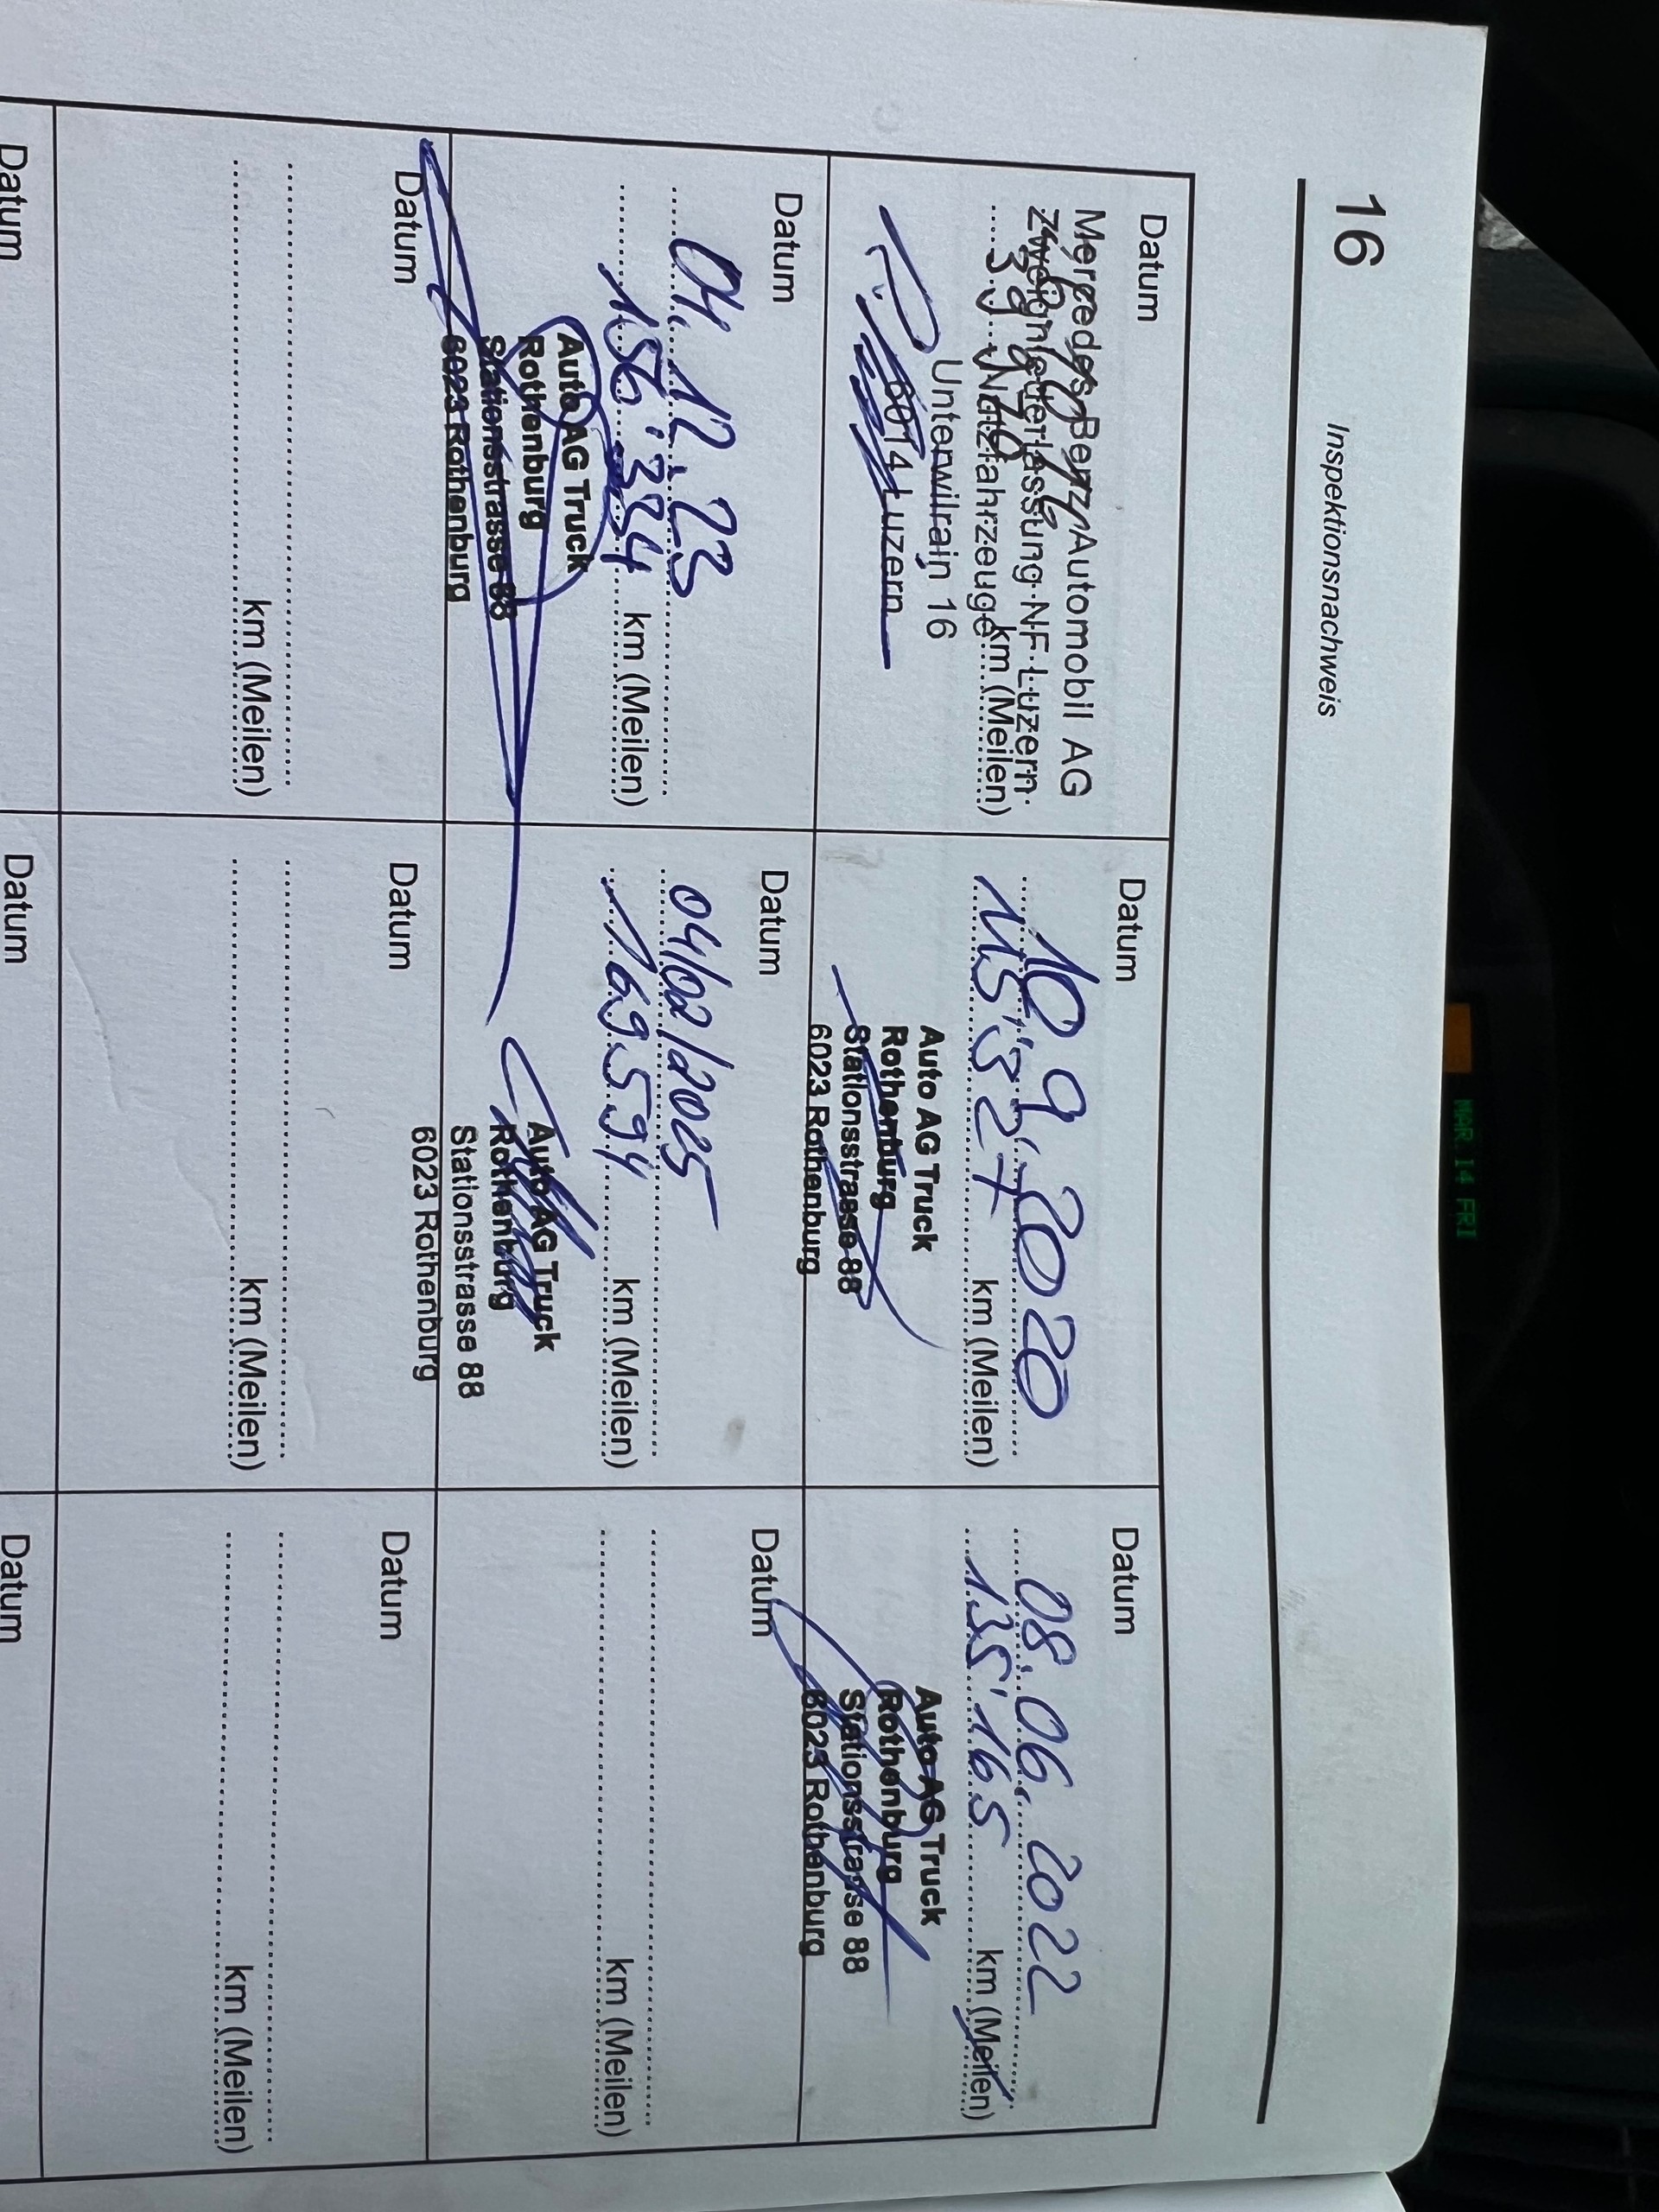 16
Inspektionsnachweis
Datum
Mercedes-Benz Automobil AG
Zweigniederlassung NF Luzern
Nutzfahrzeuge
km (Meilen)
Unterwilrain 16
6014 Luzern
Datum
10.9.2020
115'327 km (Meilen)
Auto AG Truck
Rothenburg
Stationsstrasse 88
6023 Rothenburg
Datum
08.06.2022
135'165 km (Meilen)
Auto AG Truck
Rothenburg
Stationsstrasse 88
6023 Rothenburg
Datum
04.12.23
156'334 km (Meilen)
Auto AG Truck
Rothenburg
Stationsstrasse 88
6023 Rothenburg
Datum
04/02/2025
169594 km (Meilen)
Auto AG Truck
Rothenburg
Stationsstrasse 88
6023 Rothenburg
Datum
km (Meilen)
Datum
km (Meilen)
Datum
km (Meilen)
Datum
km (Meilen)
Datum
Datum
Datum
MAR 14 FRI